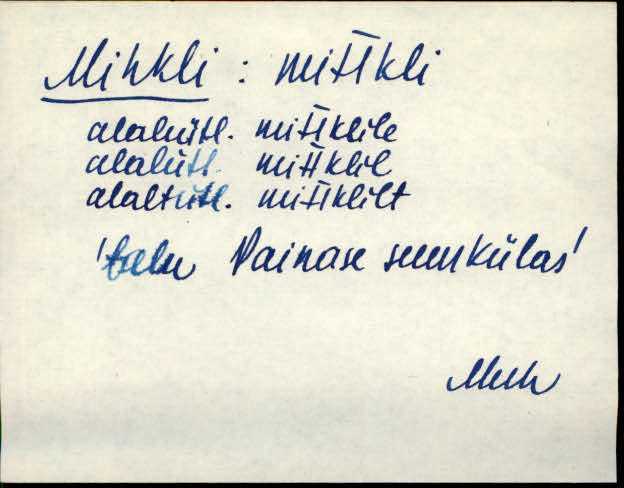 Mihkli : mihkli
alaleütl. mihklile
alalütl. mihklil
alaltütl. mihklilt
'talu Vainase suurkülas'
Muh